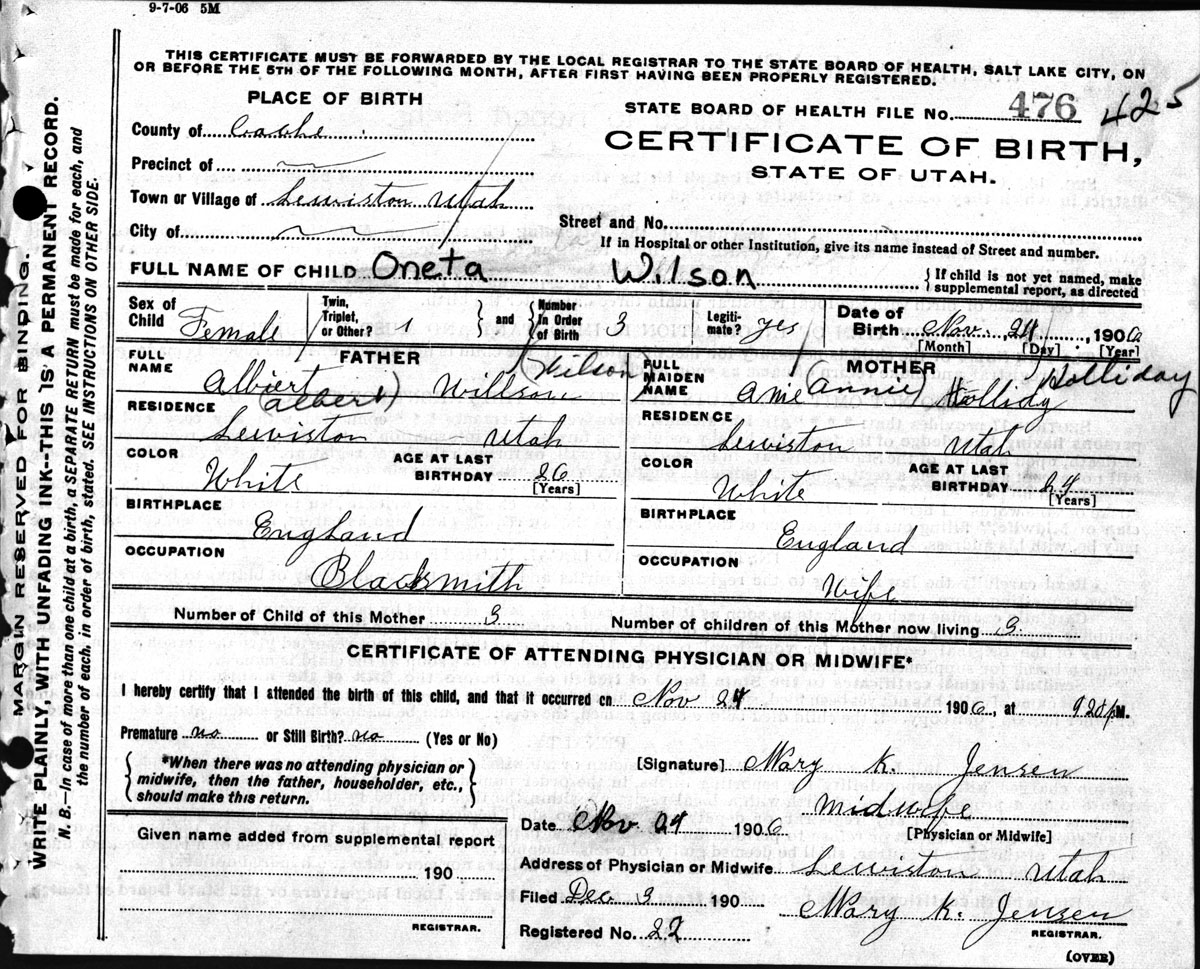 9-7-06 5M
THIS CERTIFICATE MUST BE FORWARDED BY THE LOCAL REGISTRAR TO THE STATE BOARD OF HEALTH, SALT LAKE CITY, ON
OR BEFORE THE 5TH OF THE FOLLOWING MONTH, AFTER FIRST HAVING BEEN PROPERLY REGISTERED.
MARGIN RESERVED FOR BINDING.
WRITE PLAINLY, WITH UNFADING INK--THIS IS A PERMANENT RECORD.
N. B.--In case of more than one child at a birth, a SEPARATE RETURN must be made for each, and
the number of each, in order of birth, stated. SEE INSTRUCTIONS ON OTHER SIDE.
PLACE OF BIRTH
County of Cache
Precinct of
Town or Village of Lewiston Utah
City of
STATE BOARD OF HEALTH FILE No. 476 425
CERTIFICATE OF BIRTH,
STATE OF UTAH.
Street and No.
If in Hospital or other Institution, give its name instead of Street and number.
FULL NAME OF CHILD Oneta Wilson
If child is not yet named, make
supplemental report, as directed
Sex of Child Female
Twin, Triplet, or Other? 1
and
Number in Order of Birth 3
Legitimate? yes
Date of Birth Nov. 24, 1906
[Month] [Day] [Year]
FATHER
FULL NAME Albiert (Albert) Willson (Wilson)
RESIDENCE
Lewiston Utah
COLOR White
AGE AT LAST BIRTHDAY 26
[Years]
BIRTHPLACE
England
OCCUPATION
Blacksmith
MOTHER
FULL MAIDEN NAME Anie (Annie) Hollidy Holliday
RESIDENCE
Lewiston Utah
COLOR White
AGE AT LAST BIRTHDAY 24
[Years]
BIRTHPLACE
England
OCCUPATION
Wife
Number of Child of this Mother 3
Number of children of this Mother now living 3
CERTIFICATE OF ATTENDING PHYSICIAN OR MIDWIFE*
I hereby certify that I attended the birth of this child, and that it occurred on Nov 24 1906, at 920 P M.
Premature no or Still Birth? no (Yes or No)
*When there was no attending physician or
midwife, then the father, householder, etc.,
should make this return.
[Signature] Mary K. Jensen
Midwife
[Physician or Midwife]
Given name added from supplemental report
190
REGISTRAR.
Date Nov 24 1906
Address of Physician or Midwife Lewiston Utah
Filed Dec 3 190 Mary K. Jensen
REGISTRAR.
Registered No. 22
(OVER)